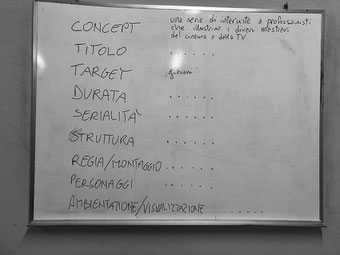 CONCEPT una serie di interviste a professionisti
che illustrino i diversi mestieri
del cinema e della TV
TITOLO ......
TARGET giovani
DURATA ......
SERIALITÀ ......
STRUTTURA ......
REGIA/MONTAGGIO ......
PERSONAGGI ......
AMBIENTAZIONE/VISUALIZZAZIONE .......